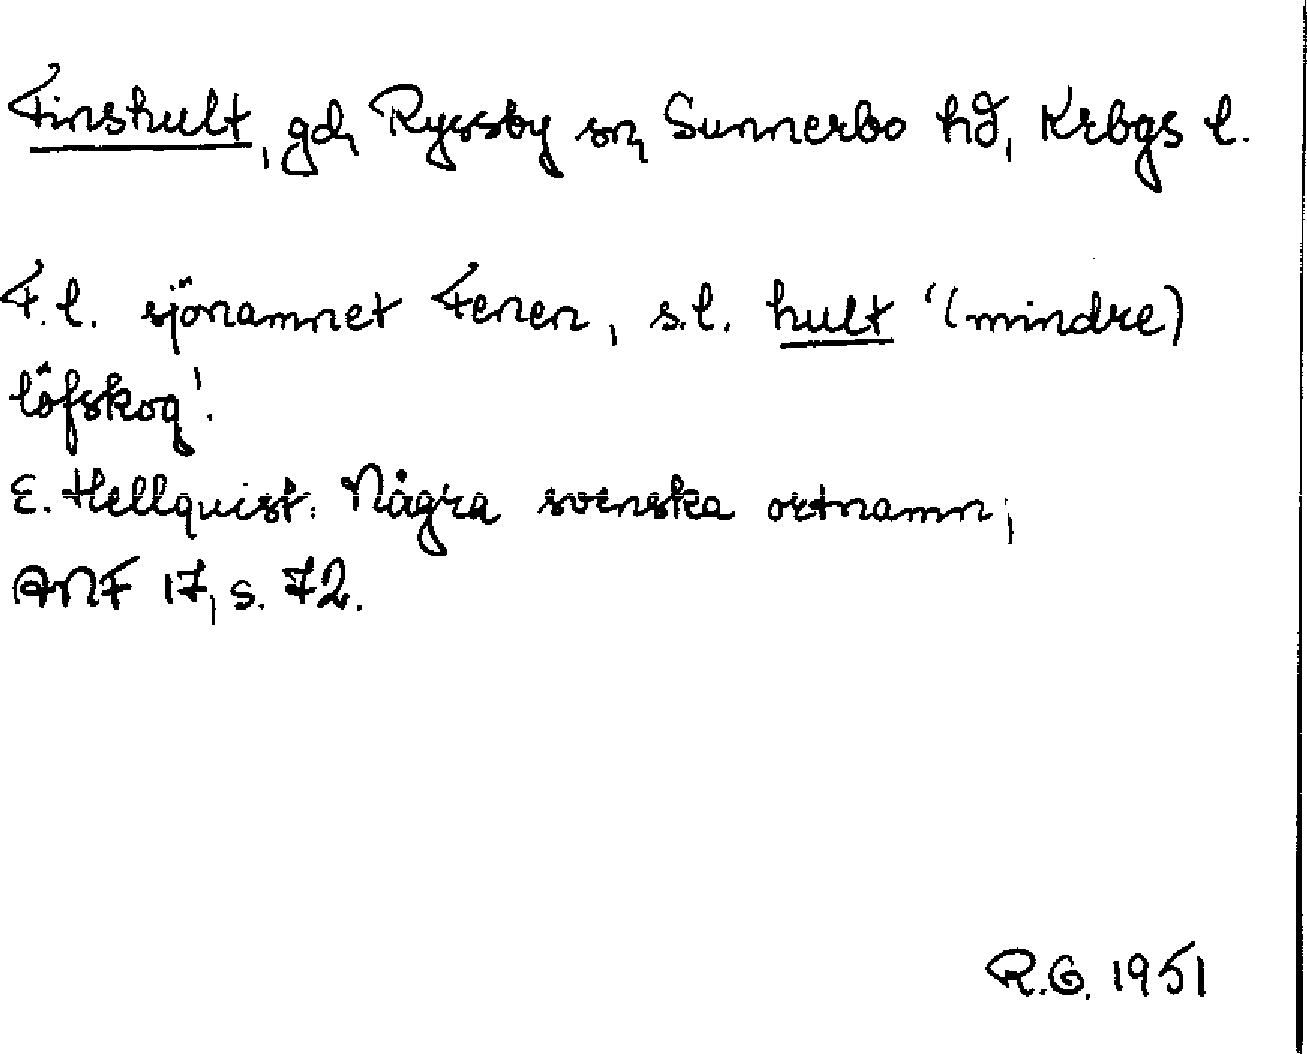 Finshult, gd, Ryssby sn, Sunnerbo hd, Krbgs l.
F.l. sjönamnet Fenen, s.l. hult '(mindre)
löfskog'.
E. Hellquist: Några svenska ortnamn;
ANF 17, s. 72.
R.G. 1951